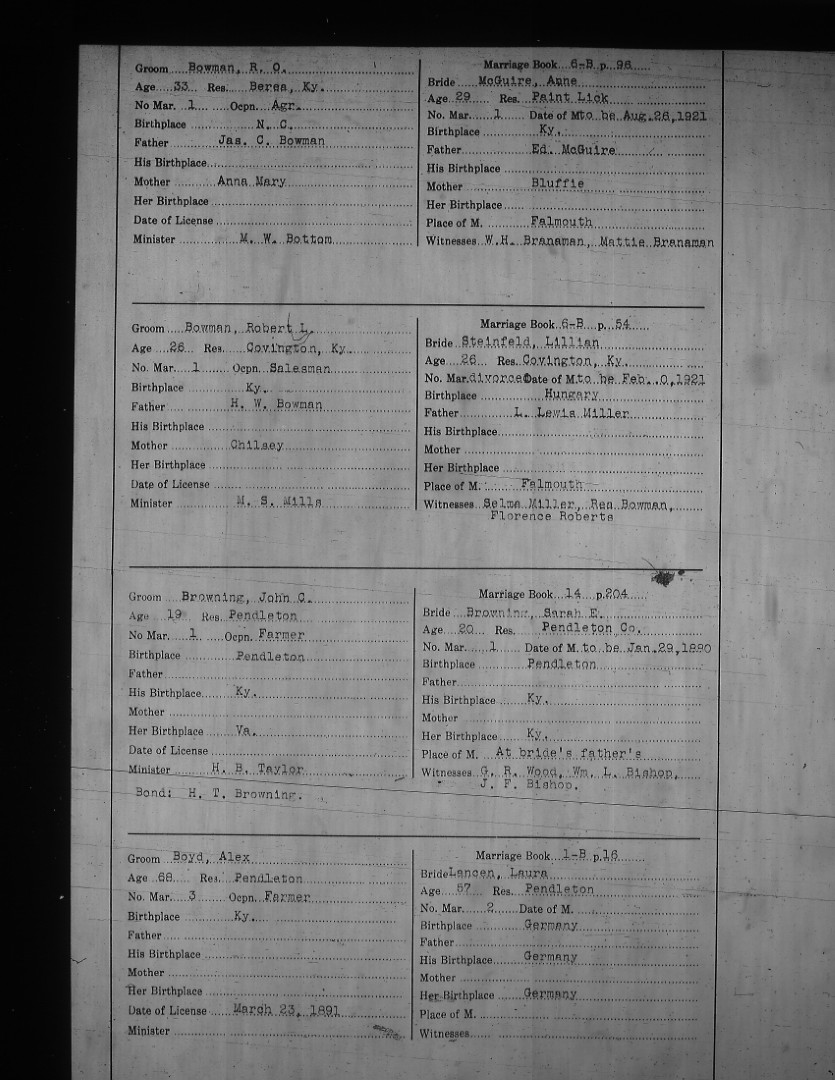 Groom Bowman, R. O.
Age 33 Res. Berea, Ky.
No Mar. 1 Ocpn. Agr.
Birthplace N. C.
Father Jas. C. Bowman
His Birthplace
Mother Anna Mary
Her Birthplace
Date of License
Minister M. W. Bottom
Marriage Book 6-B p. 96
Bride McGuire, Anne
Age 29 Res. Paint Lick
No. Mar. 1 Date of M. to be Aug. 26, 1921
Birthplace Ky.
Father Ed. McGuire
His Birthplace
Mother Bluffie
Her Birthplace
Place of M. Falmouth
Witnesses W.H. Branaman, Mattie Branaman
Groom Bowman, Robert L.
Age 26 Res. Covington, Ky.
No. Mar. 1 Ocpn. Salesman
Birthplace Ky.
Father H. W. Bowman
His Birthplace
Mother Chilsey
Her Birthplace
Date of License
Minister M. S. Mills
Marriage Book 6-B p. 54
Bride Steinfeld, Lillian
Age 26 Res. Covington, Ky.
No. Mar. divorced Date of M. to be Feb. 0, 1921
Birthplace Hungary
Father L. Lewis Miller
His Birthplace
Mother
Her Birthplace
Place of M. Falmouth
Witnesses Selma Miller, Rea Bowman,
Florence Roberts
Groom Browning, John C.
Age 19 Res. Pendleton
No Mar. 1 Ocpn. Farmer
Birthplace Pendleton
Father
His Birthplace Ky.
Mother
Her Birthplace Va.
Date of License
Minister H. B. Taylor
Bond: H. T. Browning.
Marriage Book 14 p. 204
Bride Browning, Sarah E.
Age 20 Res. Pendleton Co.
No. Mar. 1 Date of M. to be Jan. 29, 1880
Birthplace Pendleton
Father
His Birthplace Ky.
Mother
Her Birthplace Ky.
Place of M. At bride's father's
Witnesses G. R. Wood, Wm. L. Bishop,
J. F. Bishop.
Groom Boyd, Alex
Age 68 Res. Pendleton
No. Mar. 3 Ocpn. Farmer
Birthplace Ky.
Father
His Birthplace
Mother
Her Birthplace
Date of License March 23, 1891
Minister
Marriage Book 1-B p. 16
Bride Lancen, Laura
Age 57 Res. Pendleton
No. Mar. 2 Date of M.
Birthplace Germany
Father
His Birthplace Germany
Mother
Her Birthplace Germany
Place of M.
Witnesses